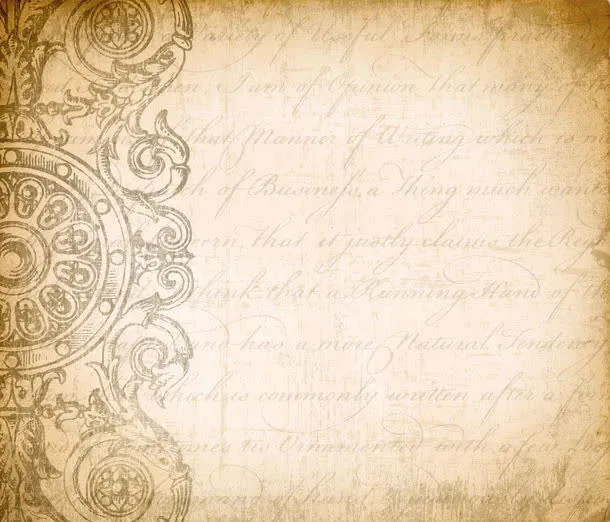 Variety of Useful Forms practised
I am of Opinion that many of the
that Manner of Writing which is m
h of Business, a Thing much want
cern, that it justly claims the Reg
hink that a Running Hand of th
and has a more Natural Tendency
which is commonly written after a fre
times tis Ornamented with a few loo
of hand